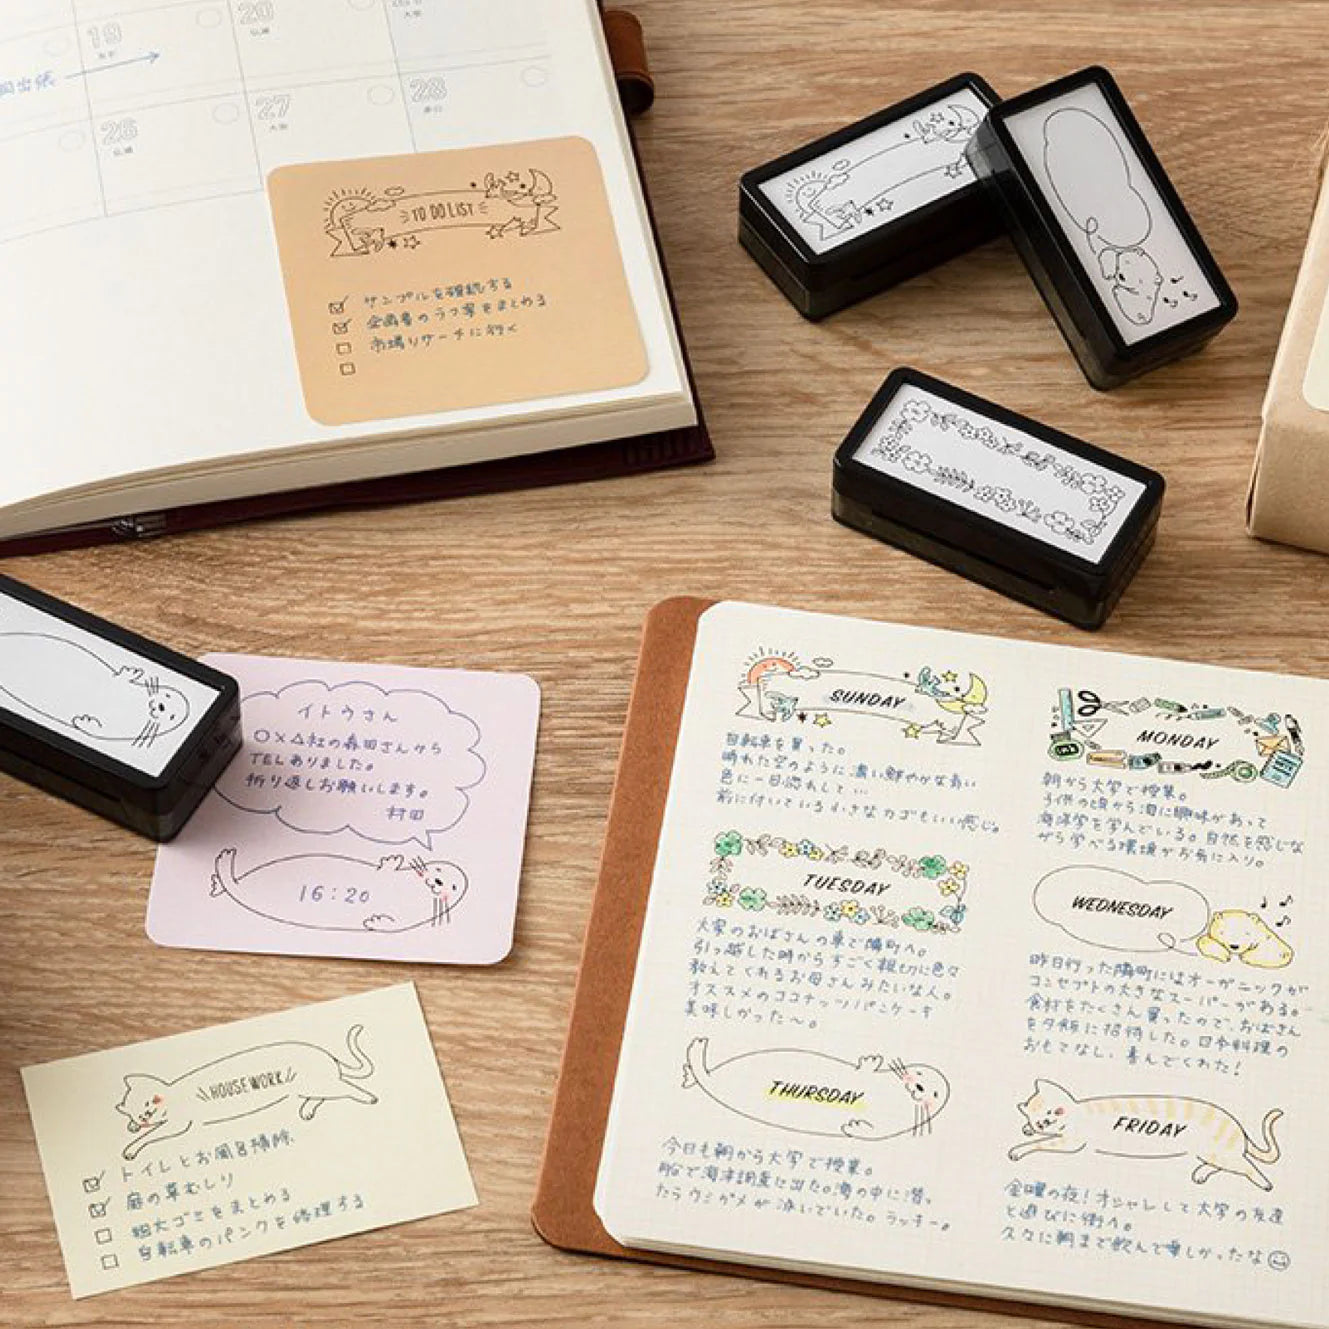 19
20
26
仏滅
27
大安
28
赤口
TO DO LIST
サンプルを確認する
企画書のラフ案をまとめる
市場リサーチに行く
イトウさん
○×△社の森田さんから
TELありました。
折り返しお願いします。
村田
16:20
HOUSEWORK
トイレとお風呂掃除
庭の草むしり
粗大ゴミをまとめる
自転車のパンクを修理する
SUNDAY
自転車を買った。
晴れた空のように濃い鮮やかな青い
色に一目惚れして…
前に付いている小さなカゴもいい感じ。
MONDAY
朝から大学で授業。
子供の頃から海に興味があって
海洋学を学んでいる。自然を感じな
がら学べる環境がお気に入り。
TUESDAY
大家のおばさんの車で隣町へ。
引っ越した時からすごく親切に色々
教えてくれるお母さんみたいな人。
オススメのココナッツパンケーキ
美味しかった〜。
WEDNESDAY
昨日行った隣町にはオーガニックが
コンセプトの大きなスーパーがある。
食材をたくさん買ったので、おばさん
を夕飯に招待した。日本料理の
おもてなし、喜んでくれた!
THURSDAY
今日も朝から大学で授業。
船で海洋調査に出た。海の中に潜っ
たらウミガメが泳いでいた。ラッキー。
FRIDAY
金曜の夜!オシャレして大学の友達
と遊びに街へ。
久々に朝まで飲んで楽しかったな